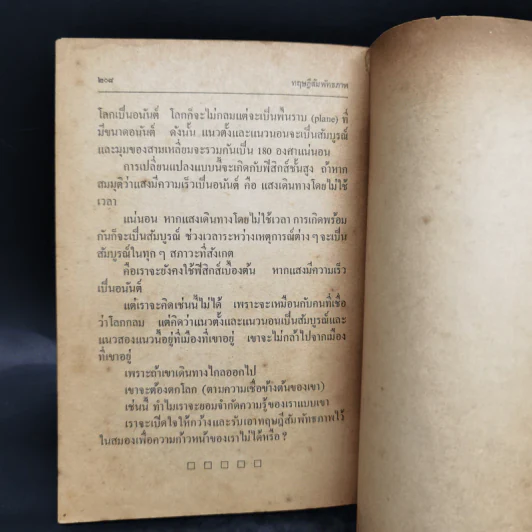 ๒๐๙ ทฤษฎีสัมพัทธภาพ
โลกเป็นอนันต์ โลกก็จะไม่กลมแต่จะเป็นพื้นราบ (plane) ที่
มีขนาดอนันต์ ดังนั้น แนวตั้งและแนวนอนจะเป็นสัมบูรณ์
และมุมของสามเหลี่ยมจะรวมกันเป็น 180 องศาแน่นอน
การเปลี่ยนแปลงแบบนี้จะเกิดกับฟิสิกส์ชั้นสูง ถ้าหาก
สมมุติว่าแสงมีความเร็วเป็นอนันต์ คือ แสงเดินทางโดยไม่ใช้
เวลา
แน่นอน หากแสงเดินทางโดยไม่ใช้เวลา การเกิดพร้อม
กันก็จะเป็นสัมบูรณ์ ช่วงเวลาระหว่างเหตุการณ์ต่าง ๆ จะเป็น
สัมบูรณ์ในทุก ๆ สภาวะที่สังเกต
คือเราจะยังคงใช้ฟิสิกส์เบื้องต้น หากแสงมีความเร็ว
เป็นอนันต์
แต่เราจะคิดเช่นนี้ไม่ได้ เพราะจะเหมือนกับคนที่เชื่อ
ว่าโลกกลม แต่คิดว่าแนวตั้งและแนวนอนเป็นสัมบูรณ์และ
แนวสองแนวนี้อยู่ที่เมืองที่เขาอยู่ เขาจะไม่กล้าไปจากเมือง
ที่เขาอยู่
เพราะถ้าเขาเดินทางไกลออกไป
เขาจะต้องตกโลก (ตามความเชื่อข้างต้นของเขา)
เช่นนี้ ทำไมเราจะยอมจำกัดความรู้ของเราแบบเขา
เราจะเปิดใจให้กว้างและรับเอาทฤษฎีสัมพัทธภาพไว้
ในสมองเพื่อความก้าวหน้าของเราไม่ได้หรือ ?